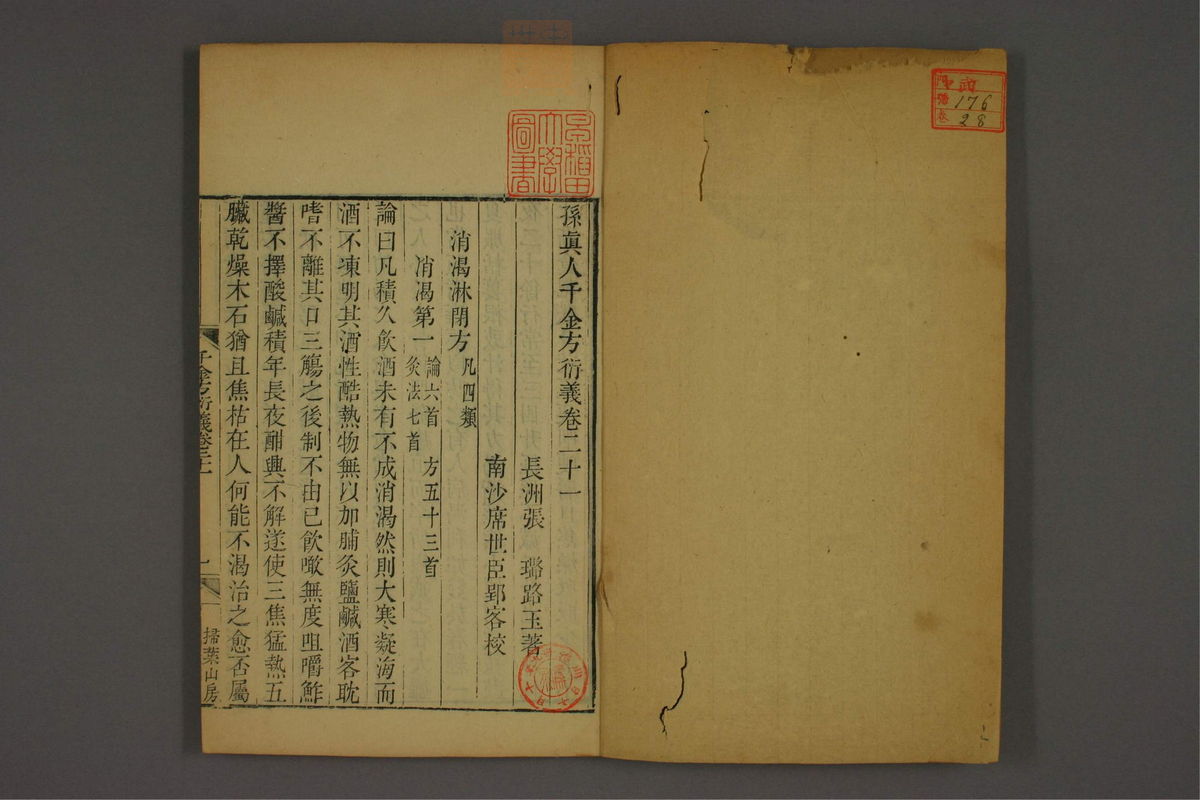 孫眞人千金方衍義卷二十一
長洲張　璐路玉著
南沙席世臣郢客校
消渴淋閉方凡四類
消渴第一論六首　方五十三首
灸法七首
論曰凡積久飮酒未有不成消渴然則大寒凝海而
酒不凍明其酒性酷熱物無以加脯炙鹽鹹酒客耽
嗜不離其口三觴之後制不由已飮噉無度咀嚼鮓
醬不擇酸鹹積年長夜酣興不解遂使三焦猛熱五
臟乾燥木石猶且焦枯在人何能不渴治之愈否屬
千金方衍義卷二十一
一
掃葉山房
早稻田
大學
圖書
176
28